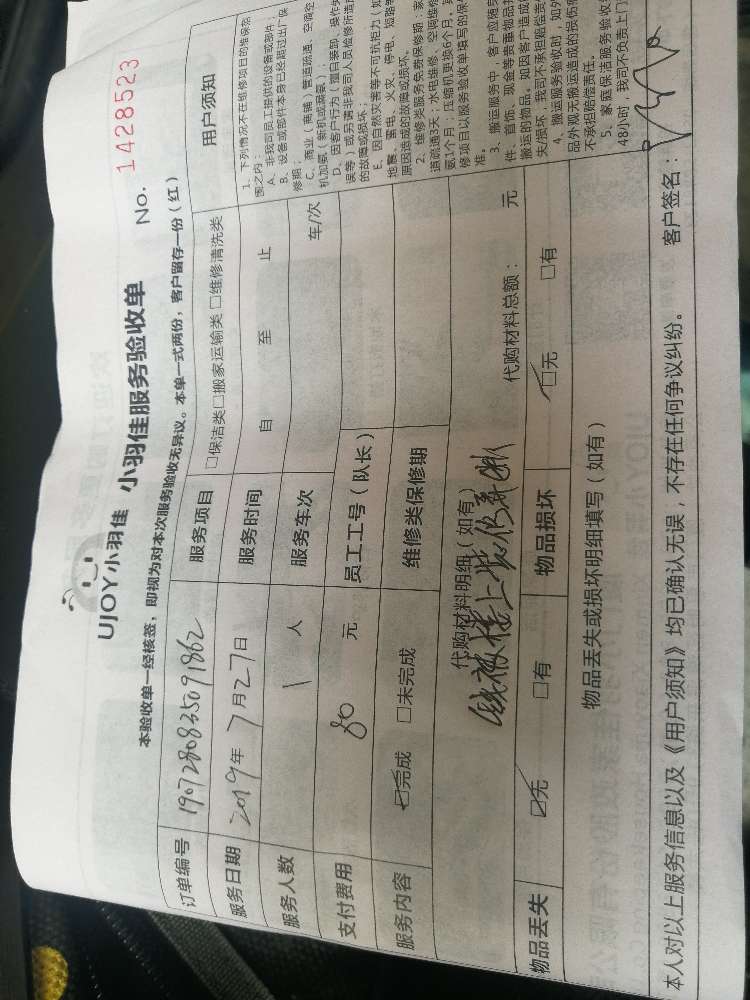 UJOY小羽佳 小羽佳服务验收单 No. 1428523
本验收单一经核签，即视为对本次服务验收无异议。本单一式两份，客户留存一份（红）
订单编号 1907280835091862 服务项目 □保洁类□搬家运输类 □维修清洗类
服务日期 2019年7月27日 服务时间 自 至 止
服务人数 1 人 服务车次 车/次
支付费用 80 元 员工工号（队长）
服务内容 ☑完成 □未完成 维修类保修期
代购材料明细（如有） 代购材料总额： 元
物品丢失 ☑无 □有 物品损坏 ☑无 □有
物品丢失或损坏明细填写（如有）
用户须知
1、下列情况不在维修项目的维保范
围之内：
A、非我司员工提供的设备或部件
B、设备或部件本身已经超过出厂保
修期；
C、商业（商铺）管道疏通、空调空
机加氨、新机或漏氨）
D、因客户行为（擅自装卸、操作失
误等）或另请非我司人员检修所造成
的故障或损坏；
E、因自然灾害等不可抗拒力（如
地震、雷电、火灾、停电、短路等
原因造成的故障或损坏。
2、维修类服务免费保修期：家
道疏通3天；水电维修、空调维修
氨1个月；压缩机更换6个月，其
修项目以服务验收单填写的保修
准。
3、搬运服务中，客户应随身
件、首饰、现金等贵重物品并
搬运的物品。如因客户造成
失/损坏，我司不承担赔偿责任
4、搬运服务验收时，如外
品外观无搬运造成的损伤痕
不承担赔偿责任。
5、家庭保洁服务验收后
48小时，我司不负责上门
本人对以上服务信息以及《用户须知》均已确认无误，不存在任何争议纠纷。 客户签名：